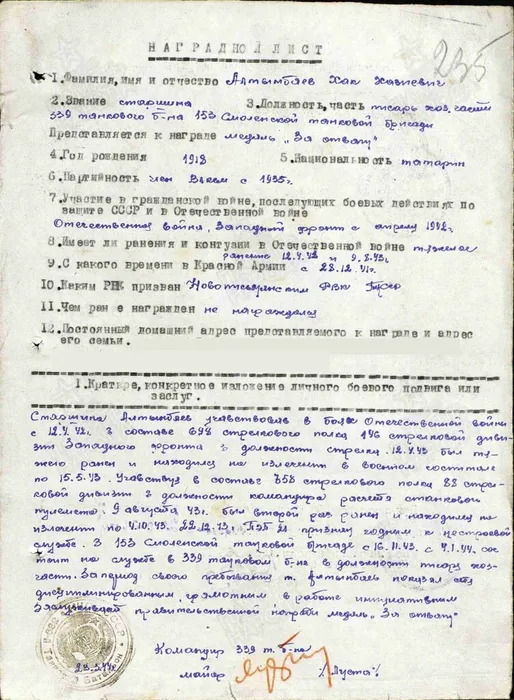 НАГРАДНОЙ ЛИСТ
235
1.Фамилия,имя и отчество Алтынбаев Хак Хазиевич
2.Звание старшина 3.Должность,часть писарь хоз.части
339 танкового б-на 153 Смоленской танковой бригады
Представляется к награде медаль "За отвагу"
4.Год рождения 1918 5.Национальность татарин
6.Партийность член ВЛКСМ с 1935г.
7.Участие в гражданской войне,последующих боевых действиях по
защите СССР и в Отечественной войне
Отечественная война, Западный фронт с апреля 1942г.
8.Имеет ли ранения и контузии в Отечественной войне тяжелое
ранение 12.4.43 и 9.8.43г.
9.С какого времени в Красной Армии с 28.12.41г.
10.Каким РВК призван
РВК
11.Чем ранее награжден не награждался
12.Постоянный домашний адрес представляемого к награде и адрес
его семьи.
I.Краткое,конкретное изложение личного боевого подвига или
заслуг.
Старшина Алтынбаев участвовал в боях Отечественной войны
с 12.4.42г. в составе стрелкового полка 146 стрелковой диви-
зии Западного фронта в должности стрелка. 12.4.43 был тя-
жело ранен и находился на излечении в военном госпитале
по 15.5.43. Участвуя в составе 758 стрелкового полка 88 стре-
лковой дивизии в должности командира расчета станкового
пулемета 9 августа 43г. был второй раз ранен и находился на
излечении по 4.10.43. 22.12.43г. признан годным к нестроевой
службе. В 153 Смоленской танковой бригаде с 16.11.43. с 4.1.44. сос-
тоит на службе в 339 танковом б-не в должности писаря хоз-
части. За период своего пребывания т. Алтынбаев показал себя
дисциплинированным, грамотным в работе инициативным
Заслуживает правительственной награды медаль "За отвагу"
Командир 339 т. б-на
майор /Пуста/